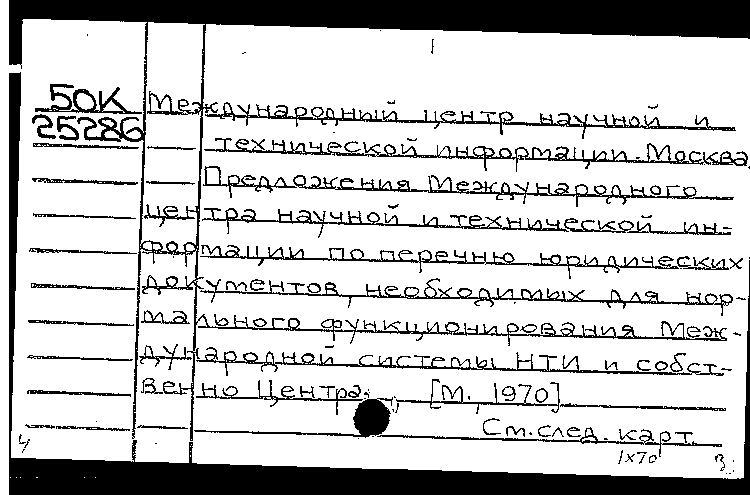 50К Международный центр научной и
25286 технической информации. Москва.
Предложения Международного
центра научной и технической ин-
формации по перечню юридических
документов, необходимых для нор-
мального функционирования Меж-
дународной системы НТИ и собст-
венно Центра. [М., 1970]
См. след. карт.
1х70